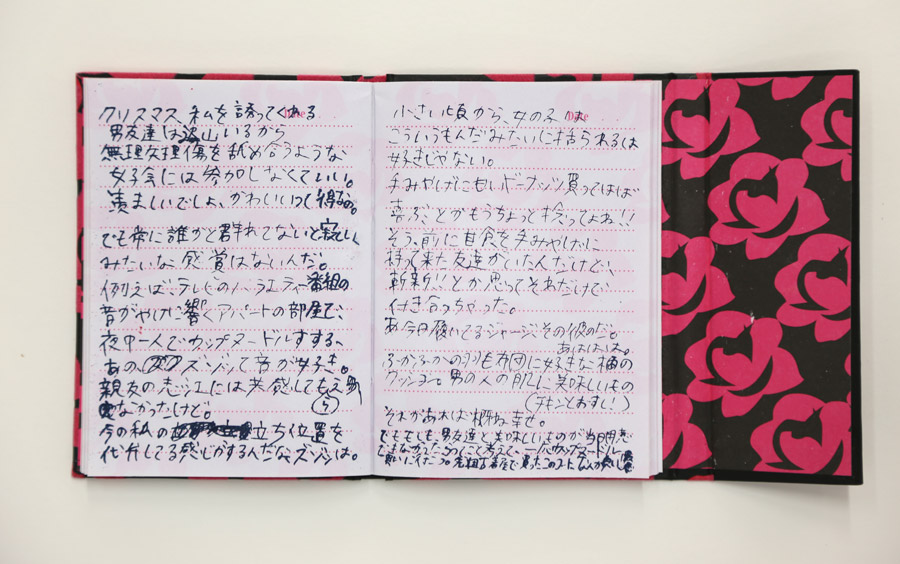 クリスマス 私を誘ってくれる
男友達は沢山いるから
無理矢理傷を舐め合うような
女子会には参加しなくていい。
羨ましいでしょ、かわいいって得なの。
でも常に誰かと群れてないと寂しく
みたいな感覚はないんだ。
例えばテレビのバラエティー番組の
音がやけに響くアパートの部屋で、
夜中一人でカップヌードルすする、
あの、ズ・ゾッて音が好き。
親友の志江には共感してもらえ
なかったけど。
今の私の立ち位置を
代弁してる感じがするんだな、ズ・ゾッは。
小さい頃から、女の子は
こういうもんだみたいに括られるは
好きじゃない。
手みやげにもいドーナッツ買ってけば
喜ぶ、とかもうちょっと捻ってよね!!
そう、前に白食を手みやげに
持って来た友達がいたんだけど、
斬新!とか思ってそれだけで
付き合っちゃった。
あ、今日履いてるジャージ、その彼のだ。
あははは。
ふかふかの羽毛布団に好きな柄の
クッション。男の人の肌に美味しいもの
(チキンとおすし!)
それがあれば概ね幸せ。
でもそもそも、男友達と美味しいものが